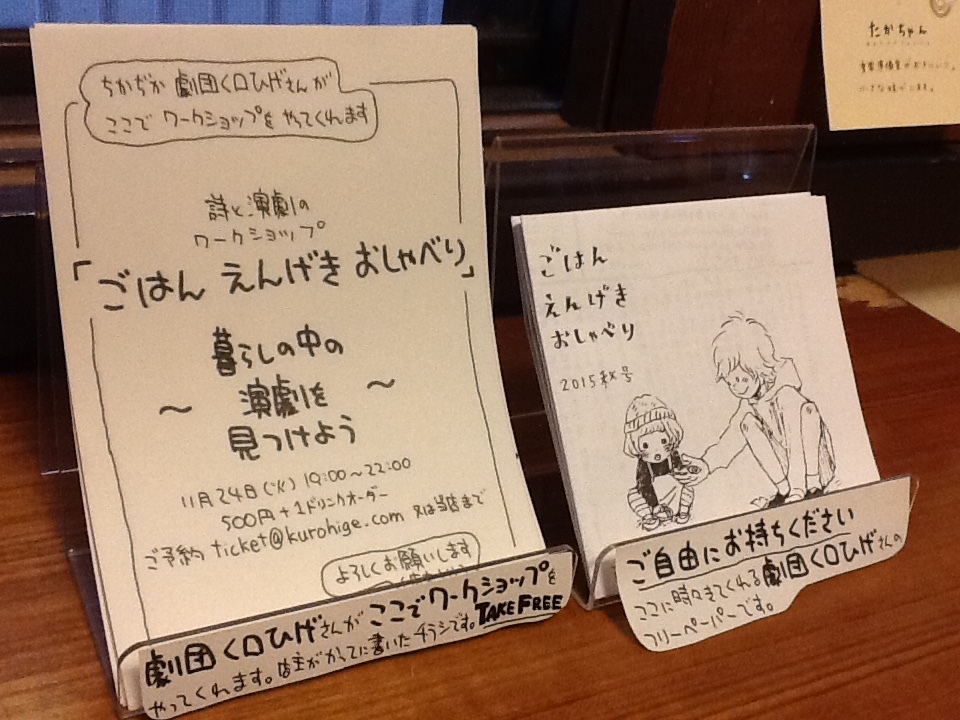 ちかぢか 劇団くロひげさんが
ここで ワークショップを やってくれます
詩と演劇の
ワークショップ
「ごはん えんげき おしゃべり」
暮らしの中の
～ 演劇を ～
見つけよう
11月24日(火) 19:00～22:00
500円+1ドリンクオーダー
ご予約 ticket@kurohige.com 又は当店まで
よろしくお願いします
劇団くロひげさんがここでワークショップを
やってくれます。店主がかってに書いたチラシです。TAKE FREE
ごはん
えんげき
おしゃべり
2015秋号
ご自由にお持ちください
ここに時々きてくれる劇団くロひげさんの
フリーペーパーです。
たかちゃん